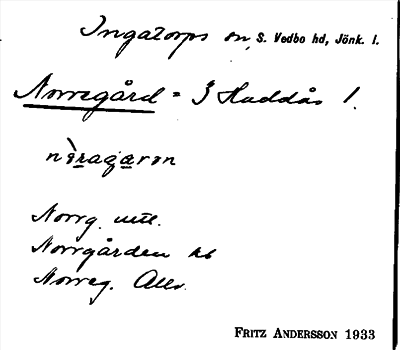 Ingatorps sn, S. Vedbo hd, Jönk. l.
Norregård = 3 Haddås 1.
Norrg.
Norrgården
Norreg.
FRITZ ANDERSSON 1933